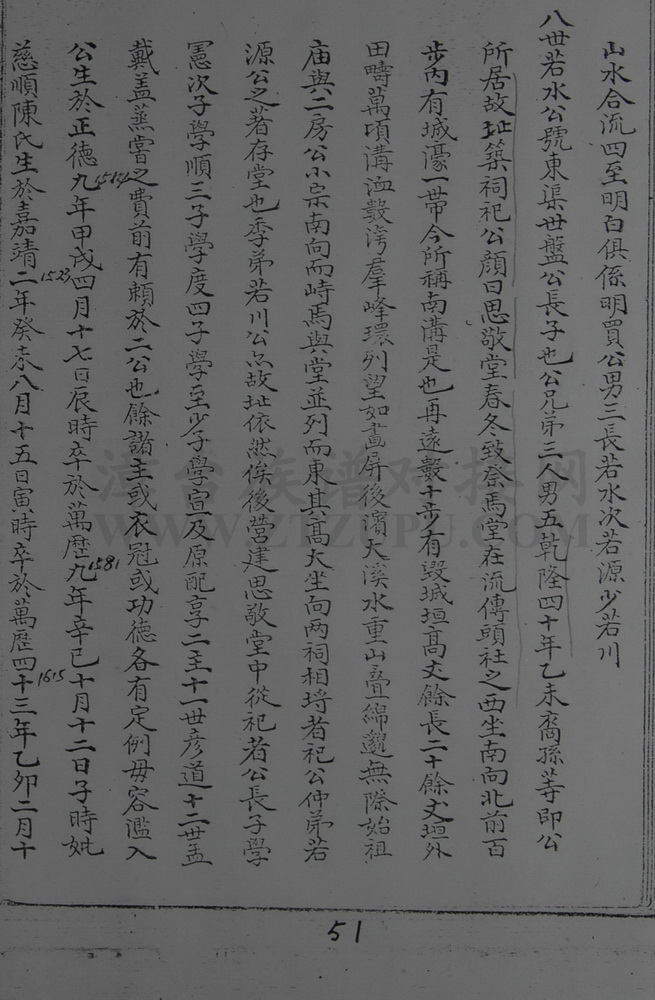 山水合流四至明白俱係明買公男三長若水次若源少若川
八世若水公號東渠世盤公長子也公兄弟三人男五乾隆四十年乙未裔孫等即公
所居故址築祠祀公顏曰思敬堂春冬致祭焉堂在流傳頭社之西坐南向北前百
步內有城濠一帶今所稱南溝是也再遠數十步有毀城垣高丈餘長二十餘丈垣外
田疇萬頃溝洫數灣羣峰環列望如畫屏後濱大溪水重山疊綿邈無際始祖
庙與二房公小宗南向而峙焉與堂並列而東其高大坐向两祠相埒者祀公仲弟若
源公之著存堂也季弟若川公亦故址依然俟後營建思敬堂中從祀者公長子學
憲次子學順三子學度四子學至少子學宣及原配享二主十一世彥道十二世孟
戴盖蒸嘗之費前有賴於二公也餘諸主或衣冠或功德各有定例毋容濫入
公生於正德九年甲戌四月十七日辰時卒於萬歷九年辛巳十月十二日子時妣
1514
1581
慈順陳氏生於嘉靖二年癸未八月十五日寅時卒於萬歷四十三年乙卯二月十
1523
1615
51
漳台族谱对接网
WWW.ZTZUPU.COM